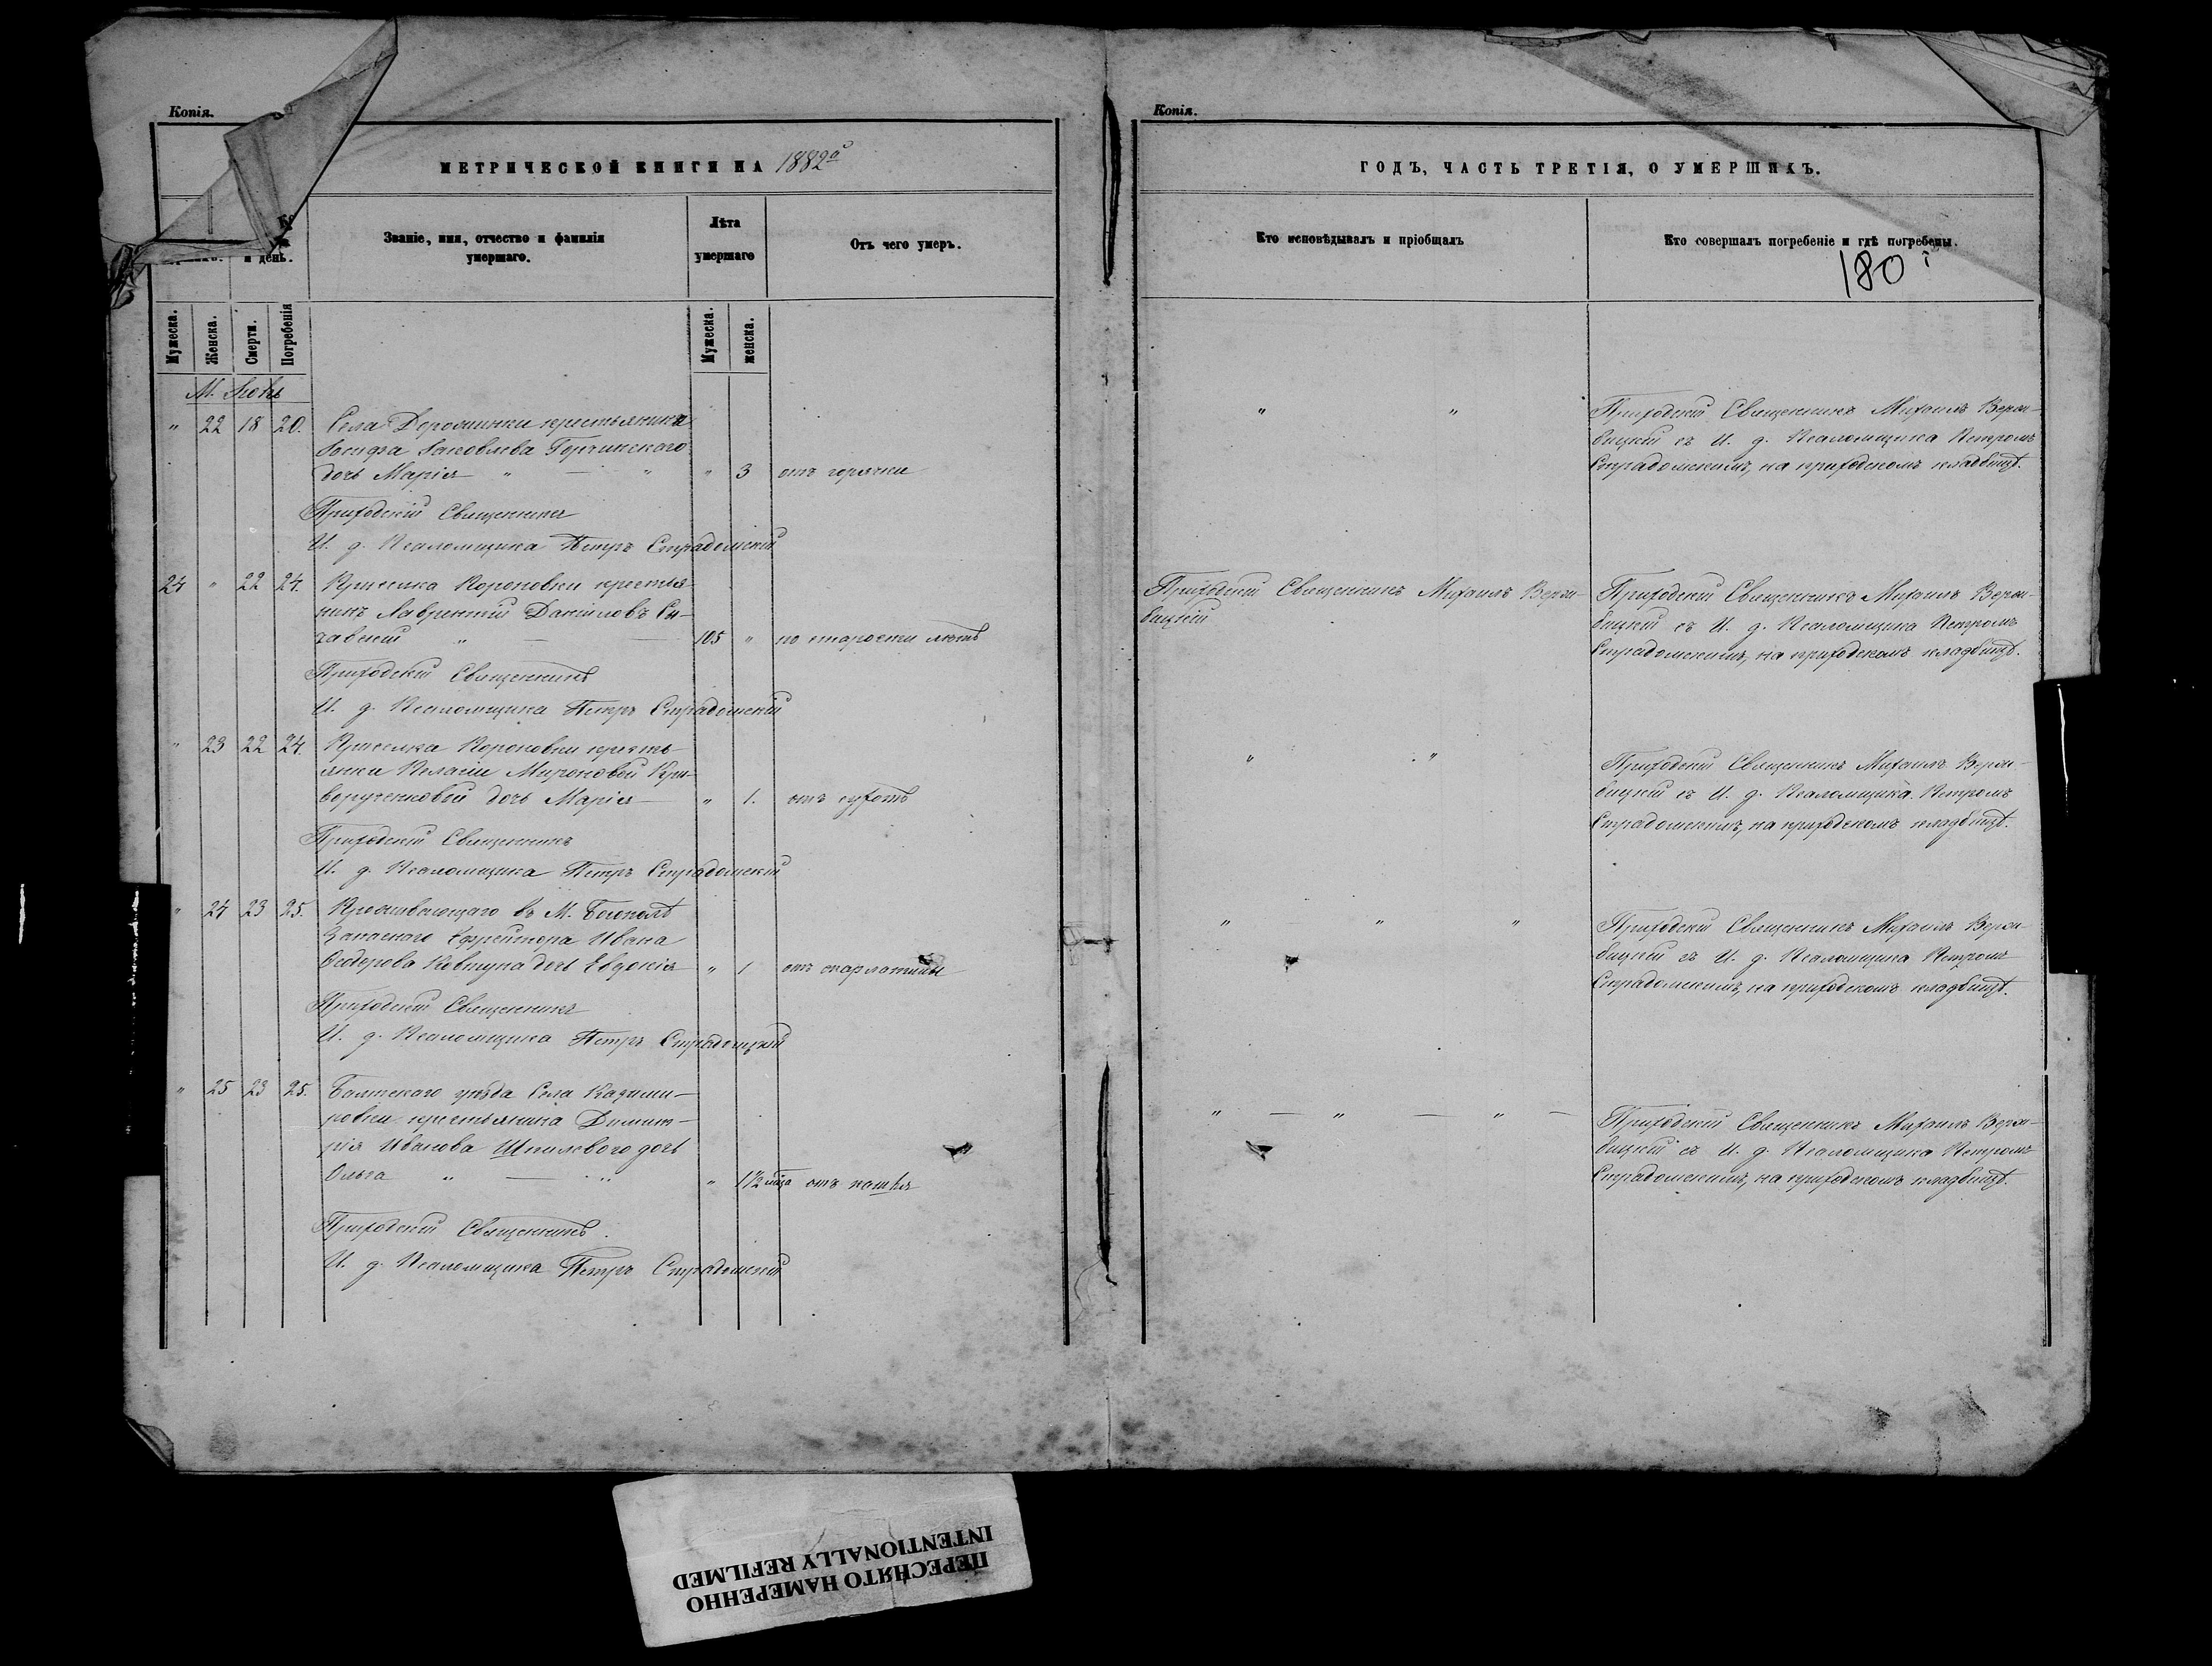 Копія.
МЕТРИЧЕСКОЙ КНИГИ НА 1882й
и день.
Званіе, имя, отчество и фамилія
умершаго.
Лѣта
умершаго
Отъ чего умеръ.
Мужеска.
Женска.
Смерти.
Погребенія
Мужеска.
женска.
М.
" 22 18 20. Села Дорошинки крестьянина
Іосифа Іаковлева Горчинского
дочь Марія " — " " 3 отъ горячки
Приходскій Священникъ
И. д. Псаломщика Петръ Страдомскій
24 " 22 24. Приселка Короновки крестья-
нинъ Лаврентій Даніиловъ
" — — 105 " по старости лѣтъ
Приходскій Священникъ
И. д. Псаломщика Петръ Страдомскій
" 23 22 24. Приселка Короновки кресть-
янки Пелагіи Мироновой Кри-
ворученковой дочь Марія — " 1. отъ сухотъ
Приходскій Священникъ
И. д. Псаломщика Петръ Страдомскій
" 24 23 25. Проживающаго въ М. Богополѣ
Запаснаго Ефрейтора Ивана
Ѳедорова Ковтуна дочь Евдокія " 1 отъ скарлатины
Приходскій Священникъ
И. д. Псаломщика Петръ Страдомскій
" 25 23 25. Балтскаго уѣзда Села Казими-
ровки крестьянина Димит-
рія Иванова Шпилевого дочь
Ольга " — " " 1½ мѣца отъ кашля
Приходскій Священникъ.
И. д. Псаломщика Петръ Страдомскій
Копія.
ГОДЪ, ЧАСТЬ ТРЕТІЯ, О УМЕРШИХЪ.
Кто исповѣдывалъ и пріобщалъ
Кто совершалъ погребеніе и гдѣ погребены.
180
" "
Приходскій Священникъ Михаилъ Верби-
вицкій съ И. д. Псаломщика Петромъ
Страдомскимъ, на приходскомъ кладбищѣ.
Приходскій Священникъ Михаилъ
вицкій
Приходскій Священникъ Михаилъ
вицкій съ И. д. Псаломщика Петромъ
Страдомскимъ, на приходскомъ кладбищѣ.
" "
Приходскій Священникъ Михаилъ
вицкій съ И. д. Псаломщика Петромъ
Страдомскимъ, на приходскомъ кладбищѣ.
" " "
Приходскій Священникъ Михаилъ
вицкій съ И. д. Псаломщика Петромъ
Страдомскимъ, на приходскомъ кладбищѣ.
" — " — " —
Приходскій Священникъ Михаилъ
вицкій съ И. д. Псаломщика Петромъ
Страдомскимъ, на приходскомъ кладбищѣ.
ПЕРЕСНЯТО НАМЕРЕННО
INTENTIONALLY REFILMED